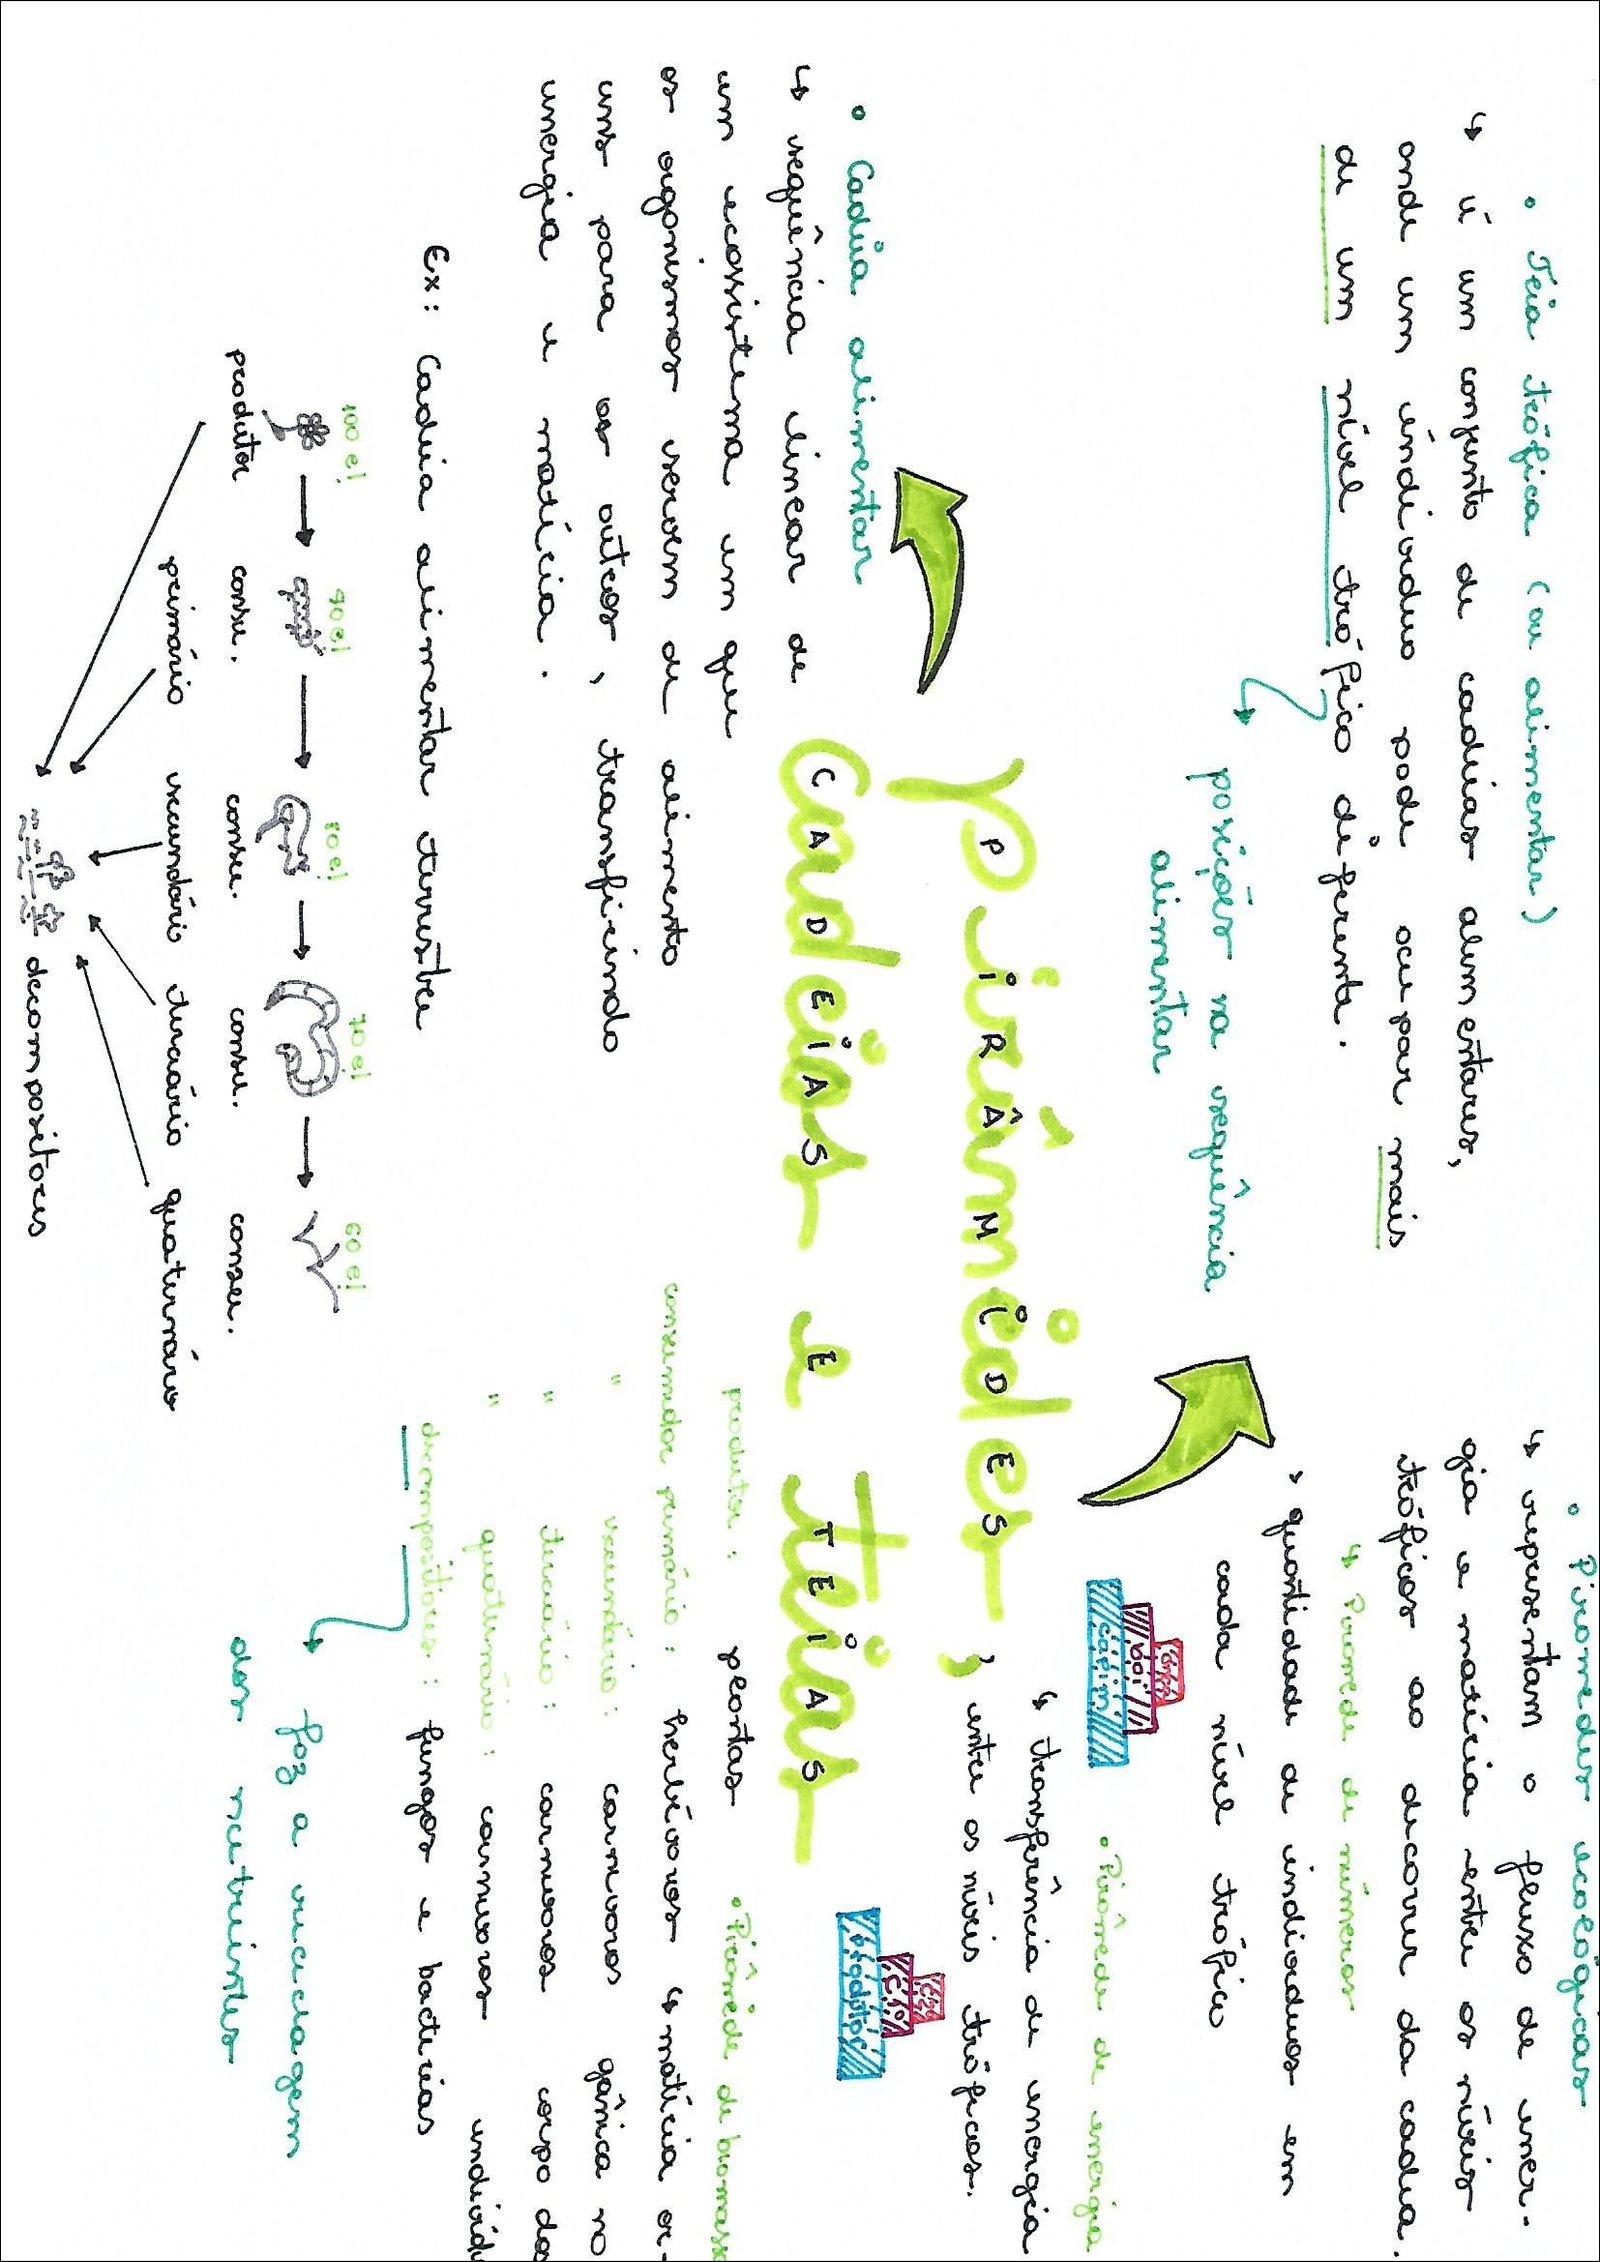 • Teia trófica (ou alimentar)
↳ é um conjunto de cadeias alimentares,
onde um indivíduo pode ocupar mais
de um nível trófico diferente.
posições na sequência
alimentar
• Pirâmides ecológicas
↳ representam o fluxo de ener-
gia e matéria entre os níveis
tróficos ao decorrer da cadeia.
↳ Pirâmide de números
› quantidade de indivíduos em
cada nível trófico
boi
capim
• Pirâmide de energia
↳ transferência de energia
entre os níveis tróficos.
PIRÂMIDES,
CADEIAS E TEIAS
• Cadeia alimentar
↳ sequência linear de
um ecossistema em que
os organismos servem de alimento
uns para os outros, transferindo
energia e matéria.
Ex: Cadeia alimentar terrestre
100 ej 90 ej 80 ej 70 ej 60 ej
produtor consu. consu. consu. consu.
primário secundário terciário quaternário
decompositores
produtor: plantas
consumidor primário: herbívoros
" secundário: carnívoros
" terciário: carnívoros
" quaternário: carnívoros
decompositores: fungos e bactérias
faz a reciclagem
dos nutrientes
produtor
• Pirâmide de biomassa
↳ matéria or-
gânica no
corpo dos